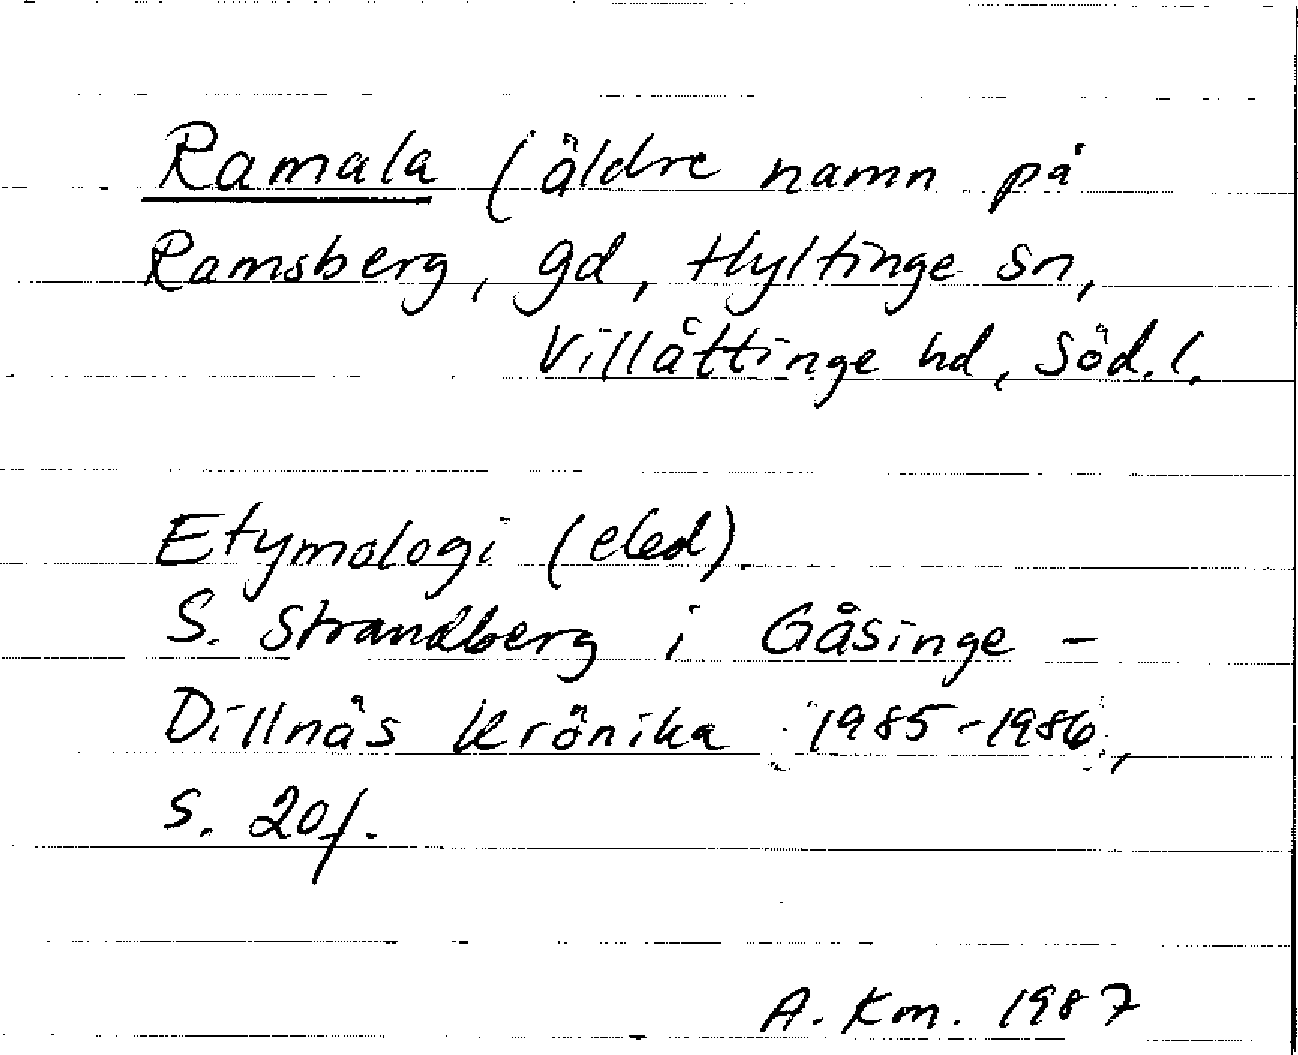 Ramala (äldre namn på
Ramsberg, gd, Hyltinge sn,
Villåttinge hd, Söd.l.
Etymologi (eled).
S. Strandberg i Gåsinge -
Dillnäs Krönika (1985-1986),
s. 20f.
A. Km. 1987